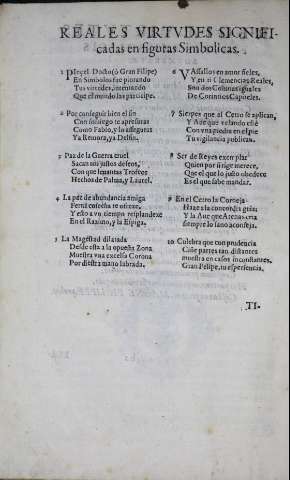 REALES VIRTVDES SIGNIFI-
cadas en figuras Simbolicas.
1 Pincel Docto (ò Gran Filipe)
En Simbolos fue pintando
Tus virtudes, intentando
Que el mundo las participe.
2 Por conseguir bien el fin
Con sossiego te apresuras
Como Fabio, y lo asseguras
Ya Remora, ya Delfin.
3 Paz de la Guerra cruel
Sacan sus justos deseos,
Con que leuantas Trofeos
Hechos de Palma, y Laurel.
4 La paz de abundancia amiga
Fertil cosecha te ofrece,
Y esto a vn tiempo resplandece
En el Razimo, y la Espiga.
5 La Magestad dilatada
Desde esta a la opuesta Zona
Muestra vna excelsa Corona
Por diestra mano labrada.
6 Vassallos en amor fieles,
Y en ti Clemencias Reales,
Son dos Colunas iguales
De Corintios Capiteles.
7 Sierpes que al Cetro se aplican,
Y Aue que velando esté
Con vna piedra en el pie
Tu vigilancia publican.
8 Ser de Reyes exemplar
Quien por si regir merece,
Que el que lo justo obedece
Es el que sabe mandar.
9 En el Cetro la Corneja
Haze a la concordia guia;
Y la Aue que Atenas cria
siempre lo sano aconseja.
10 Culebra que con prudencia
Ciñe partes tan distantes
muestra en casos inconstantes,
Gran Felipe, tu esperiencia.
TI-